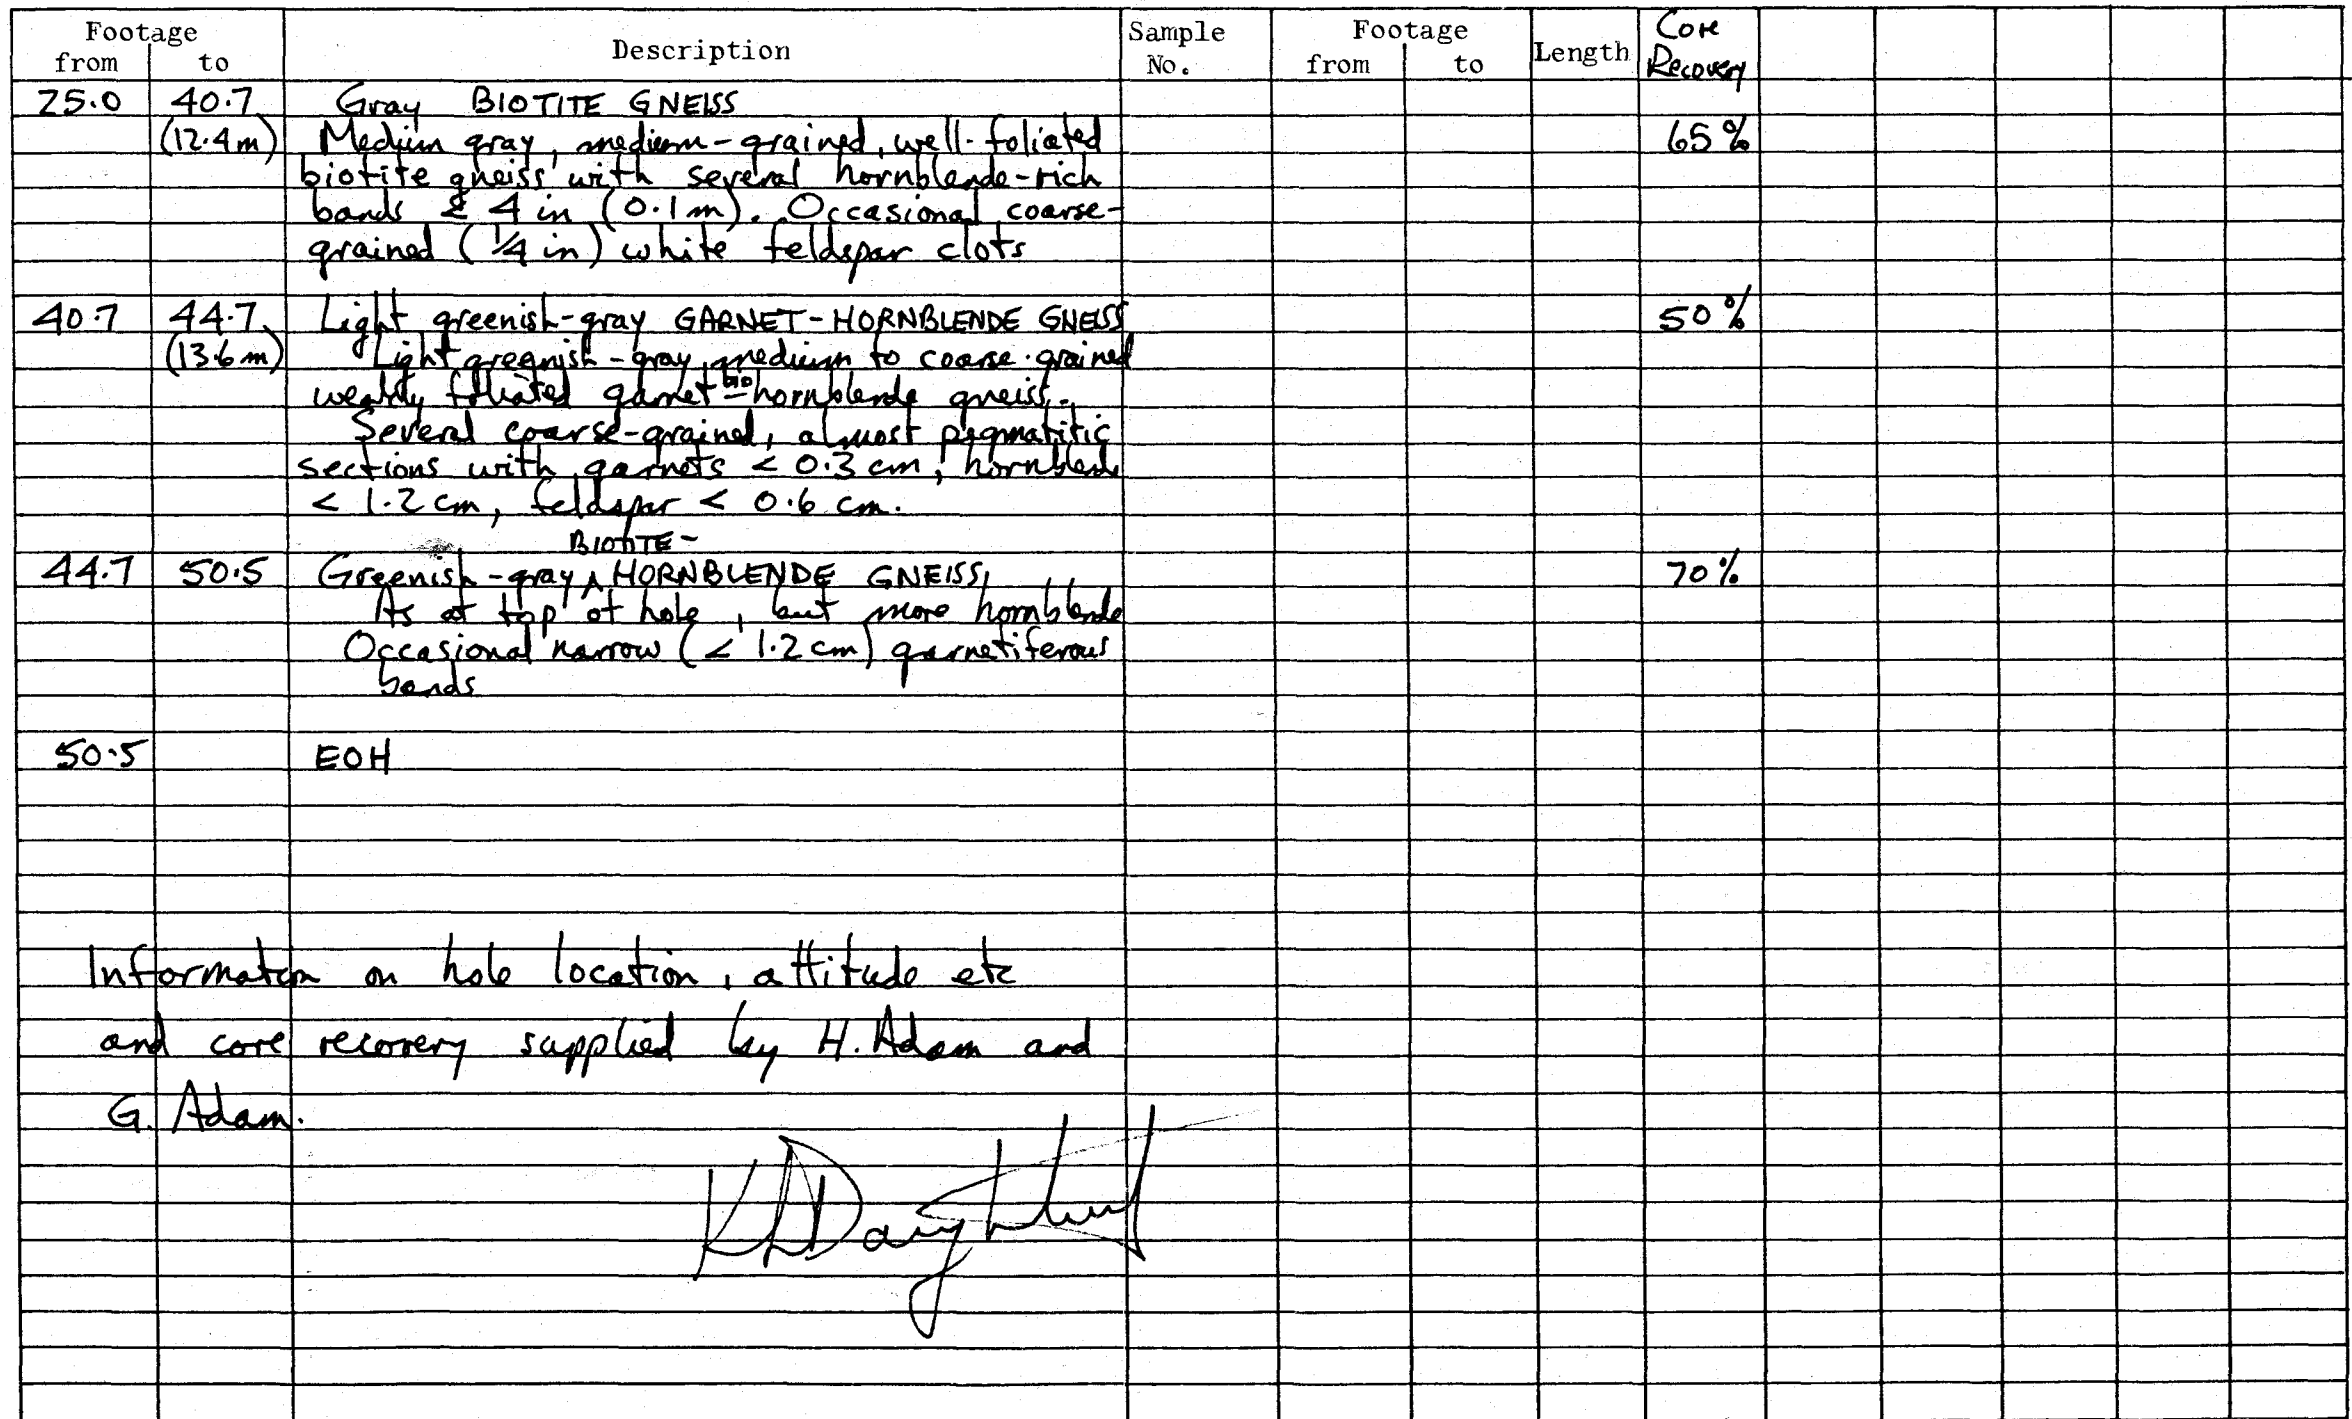 Footage Description Sample No. Footage Length Core Recovery
from to from to
25.0 40.7 Gray BIOTITE GNEISS
(12.4 m) Medium gray, medium-grained, well-foliated 65%
biotite gneiss with several hornblende-rich
bands ≤ 4 in (0.1 m). Occasional coarse-
grained (1/4 in) white feldspar clots
40.7 44.7 Light greenish-gray GARNET-HORNBLENDE GNEISS 50%
(13.6 m) Light greenish-gray, medium to coarse-grained
weakly foliated garnet-bio-hornblende gneiss.
Several coarse-grained, almost pegmatitic
sections with garnets < 0.3 cm, hornblende
< 1.2 cm, feldspar < 0.6 cm.
BIOTITE-
44.7 50.5 Greenish-gray ^ HORNBLENDE GNEISS, 70%
As at top of hole, but more hornblende
Occasional narrow (< 1.2 cm) garnetiferous
bands
50.5 EOH
Information on hole location, attitude etc
and core recovery supplied by H. Adam and
G. Adam.